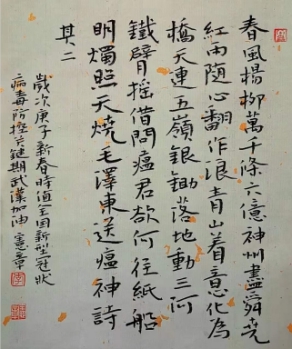 春風楊柳萬千條六億神州盡舜堯
紅雨隨心翻作浪青山着意化為
橋天連五嶺銀鋤落地動三河
鐵臂搖借問瘟君欲何往紙船
明燭照天燒毛澤東送瘟神詩
其二
歲次庚子新春時值全國新型冠狀
病毒防控关鍵期武漢加油 憲章